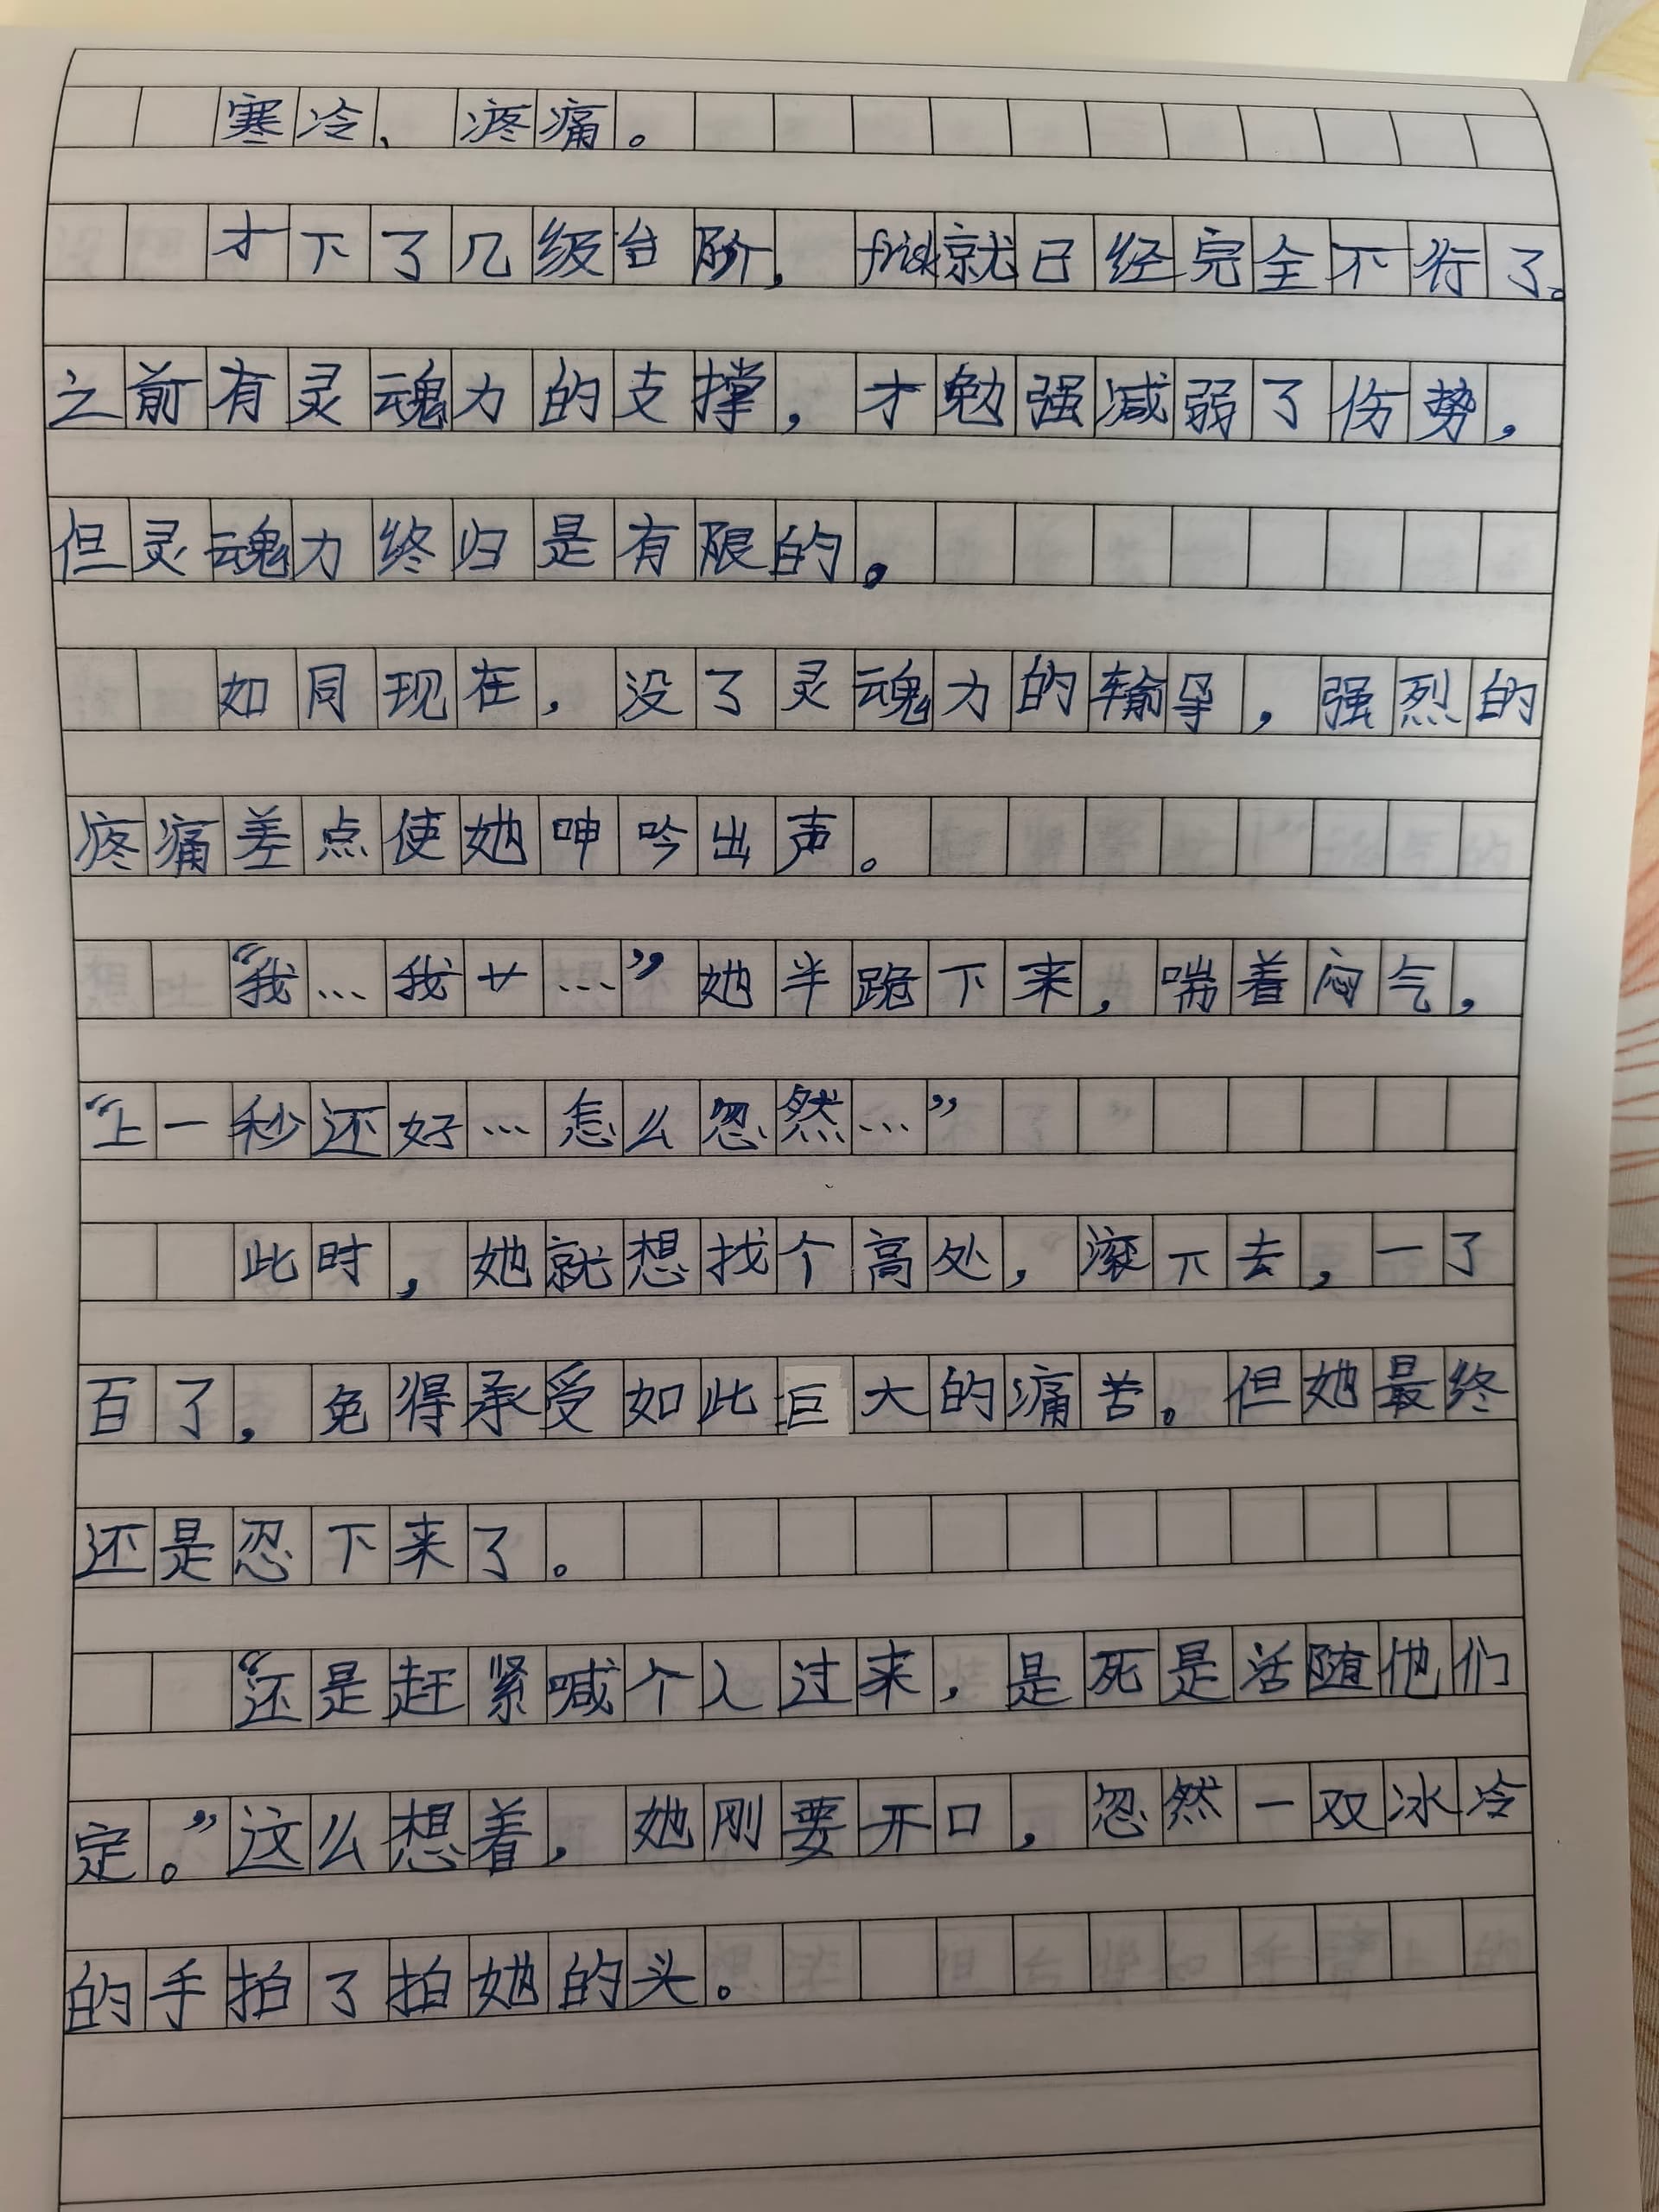 寒冷、疼痛。
才下了几级台阶，frisk就已经完全不行了。
之前有灵魂力的支撑，才勉强减弱了伤势，
但灵魂力终归是有限的。
如同现在，没了灵魂力的输导，强烈的
疼痛差点使她呻吟出声。
“我…我艹…”她半跪下来，喘着闷气，
“上一秒还好…怎么忽然…”
此时，她就想找个高处，滚下去，一了
百了，免得承受如此巨大的痛苦。但她最终
还是忍下来了。
“还是赶紧喊个人过来，是死是活随他们
定。”这么想着，她刚要开口，忽然一双冰冷
的手拍了拍她的头。